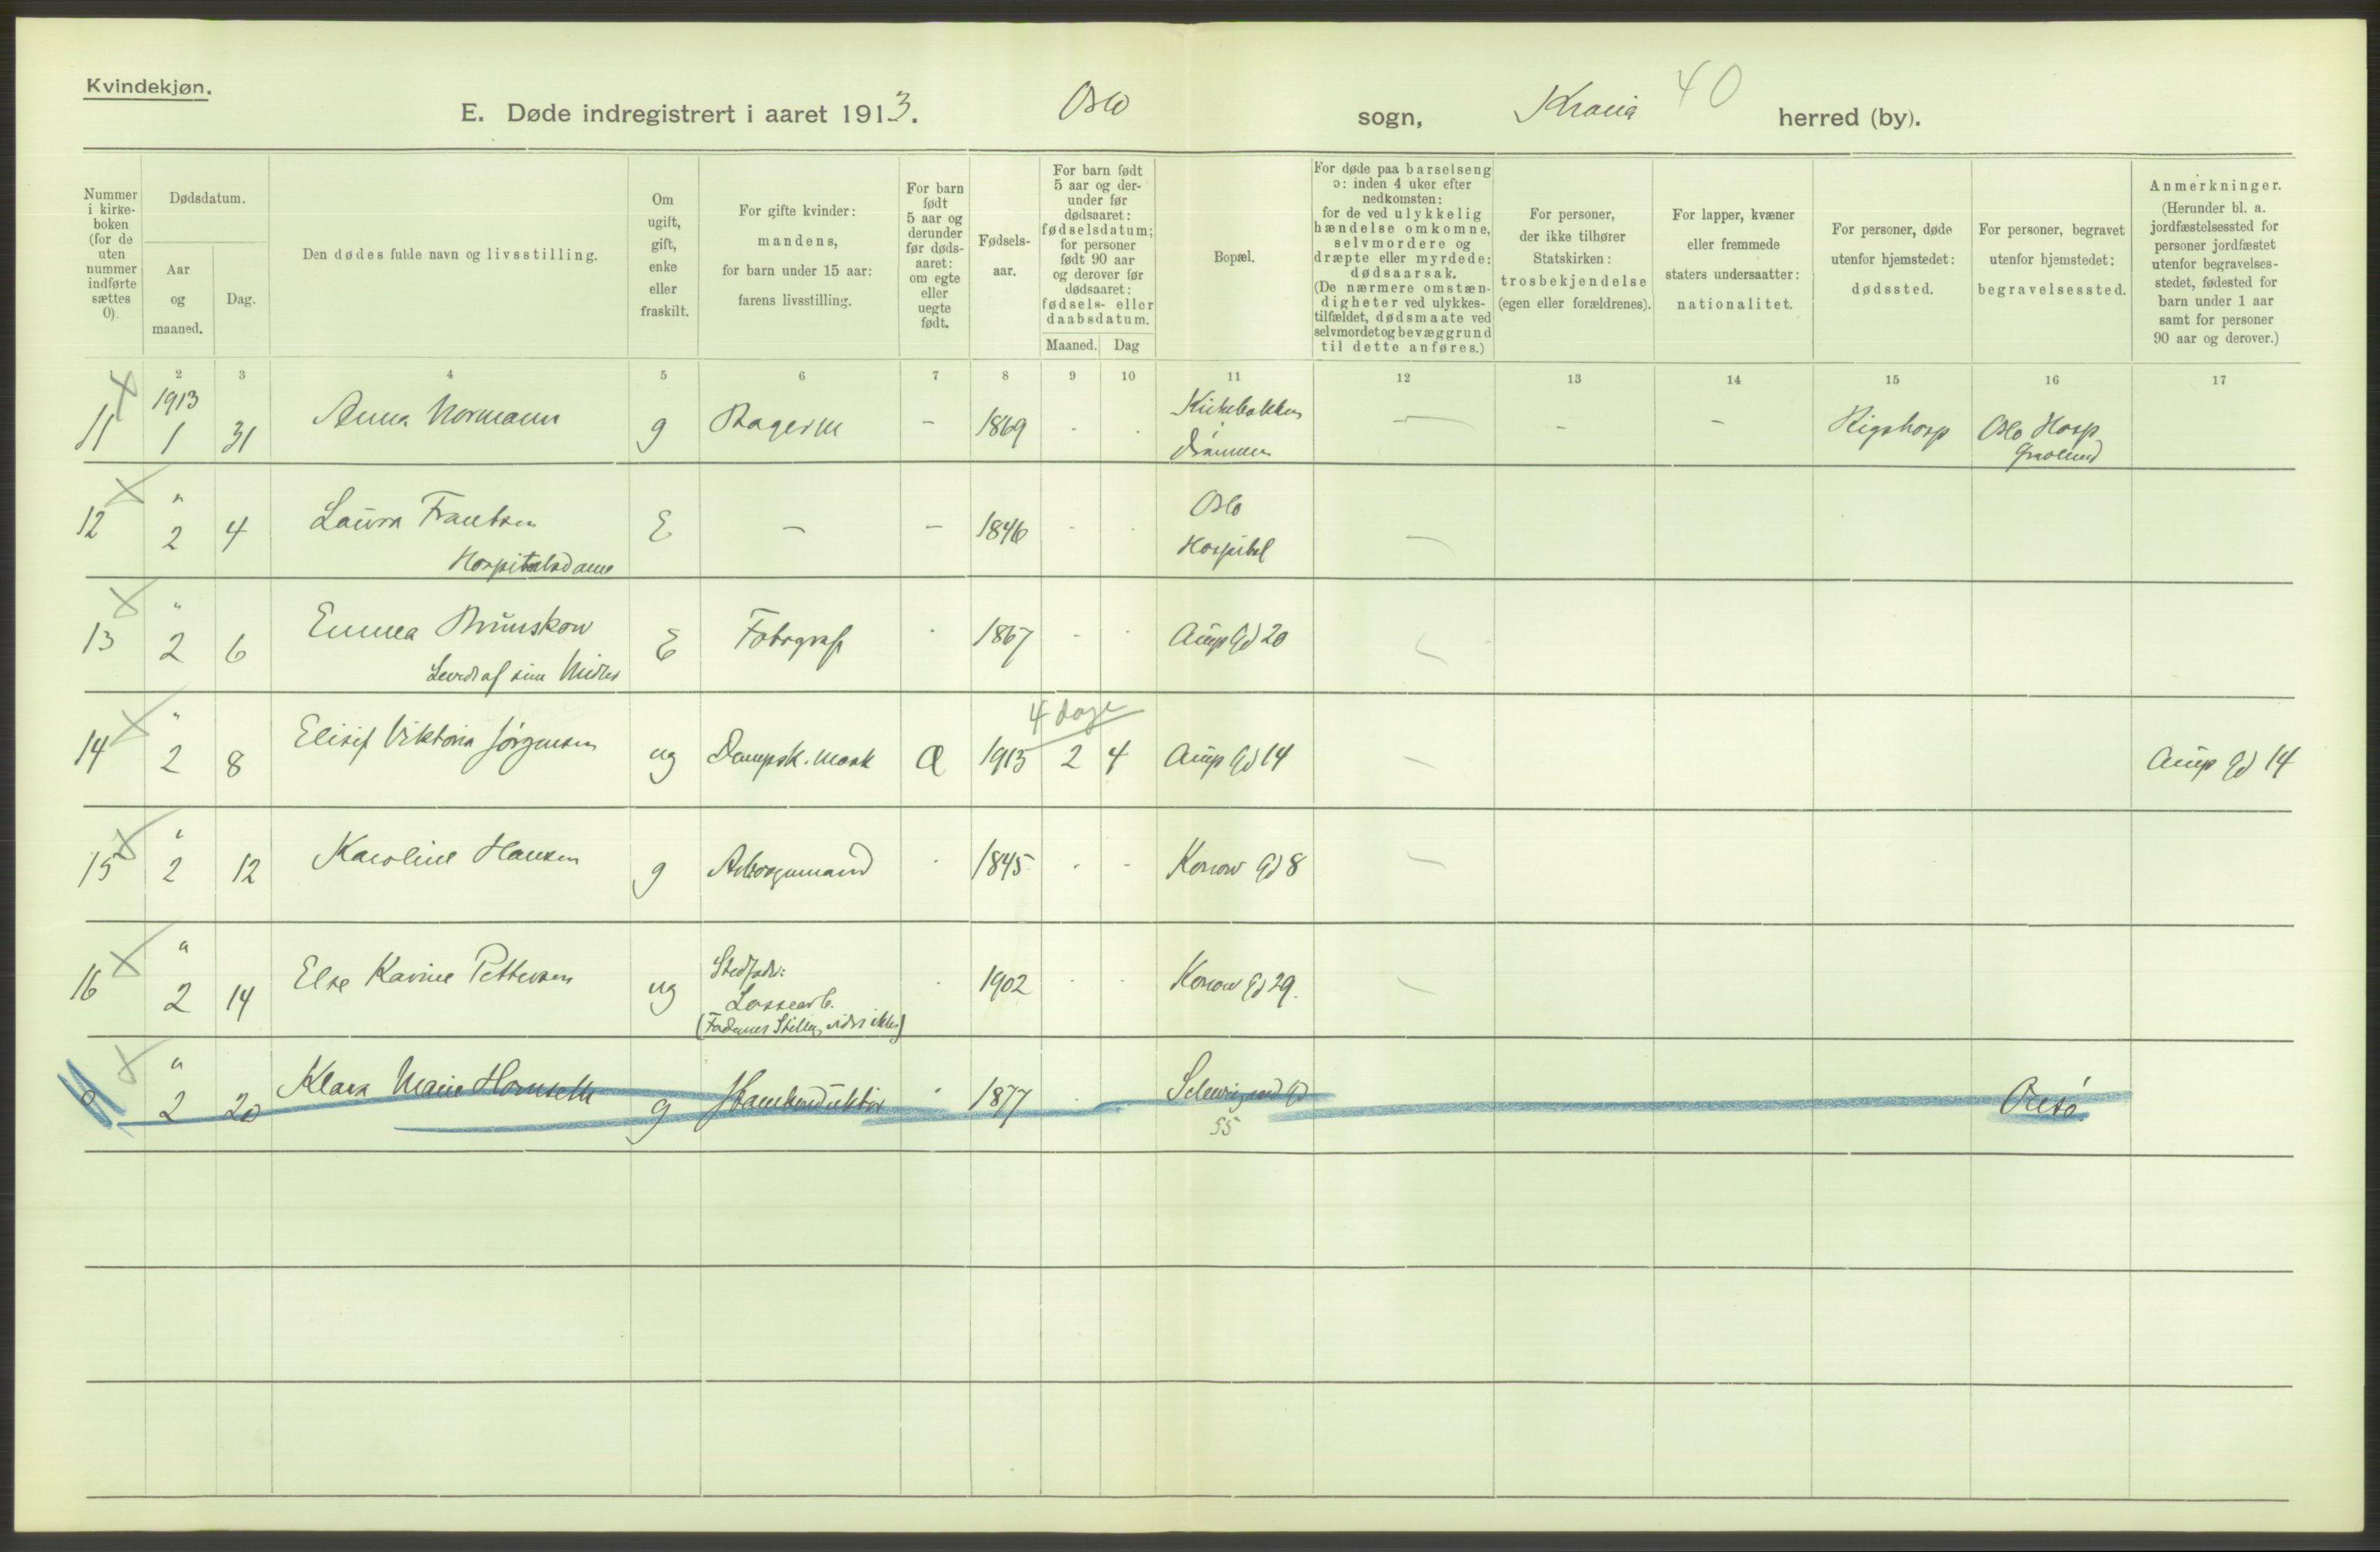 Kvindekjøn.
E. Døde indregistrert i aaret 1913. Oslo sogn, Krania 40 herred (by).
Nummer i kirke-boken (for de uten nummer indførte sættes 0).
Dødsdatum.
Aar og maaned.
Dag.
Den dødes fulde navn og livsstilling.
Om ugift, gift, enke eller fraskilt.
For gifte kvinder: mandens, for barn under 15 aar: farens livsstilling.
For barn født 5 aar og derunder før døds-aaret: om egte eller uegte født.
Fødsels-aar.
For barn født 5 aar og der-under før dødsaaret: fødselsdatum; for personer født 90 aar og derover før dødsaaret: fødsels- eller daabsdatum.
Maaned. Dag
Bopæl.
For døde paa barselseng ɔ: inden 4 uker efter nedkomsten: for de ved ulykkelig hændelse omkomne, selvmordere og dræpte eller myrdede: dødsaarsak. (De nærmere omstæn-digheter ved ulykkes-tilfældet, dødsmaate ved selvmordet og bevæggrund til dette anføres.)
For personer, der ikke tilhører Statskirken: trosbekjendelse (egen eller forældrenes).
For lapper, kvæner eller fremmede staters undersaatter: nationalitet.
For personer, døde utenfor hjemstedet: dødssted.
For personer, begravet utenfor hjemstedet: begravelsessted.
Anmerkninger. (Herunder bl. a. jordfæstelsessted for personer jordfæstet utenfor begravelses-stedet, fødested for barn under 1 aar samt for personer 90 aar og derover.)
1 2 3 4 5 6 7 8 9 10 11 12 13 14 15 16 17
11 1913 1 31 Anna Normann g Bagerm – 1869 Kirkebakken Drammen – – – Rigshosp Oslo Hosp Gravlund
12 " 2 4 Laura Frantsen E – – 1846 Oslo Hospital –
Hospitalsdame
13 " 2 6 Emma Brunskow E Fotograf 1867 Amp Gd 20
Levedi af sine Midler
4 dage
14 " 2 8 Elisif Viktoria Jörgensen ug Dampsk. mask 1913 2 4 Amp Gd 14 – Amp Gd 14
15 " 2 12 Karoline Hansen g 1845 Konow Gd 8 –
16 " 2 14 Else Karine Pettersen ug Stedfader: 1902 Konow Gd 29. –
Lossearb.
(Faderens Stilling vides ikke)
0 " 2 20 Klara Marie g 1877 Gd
55